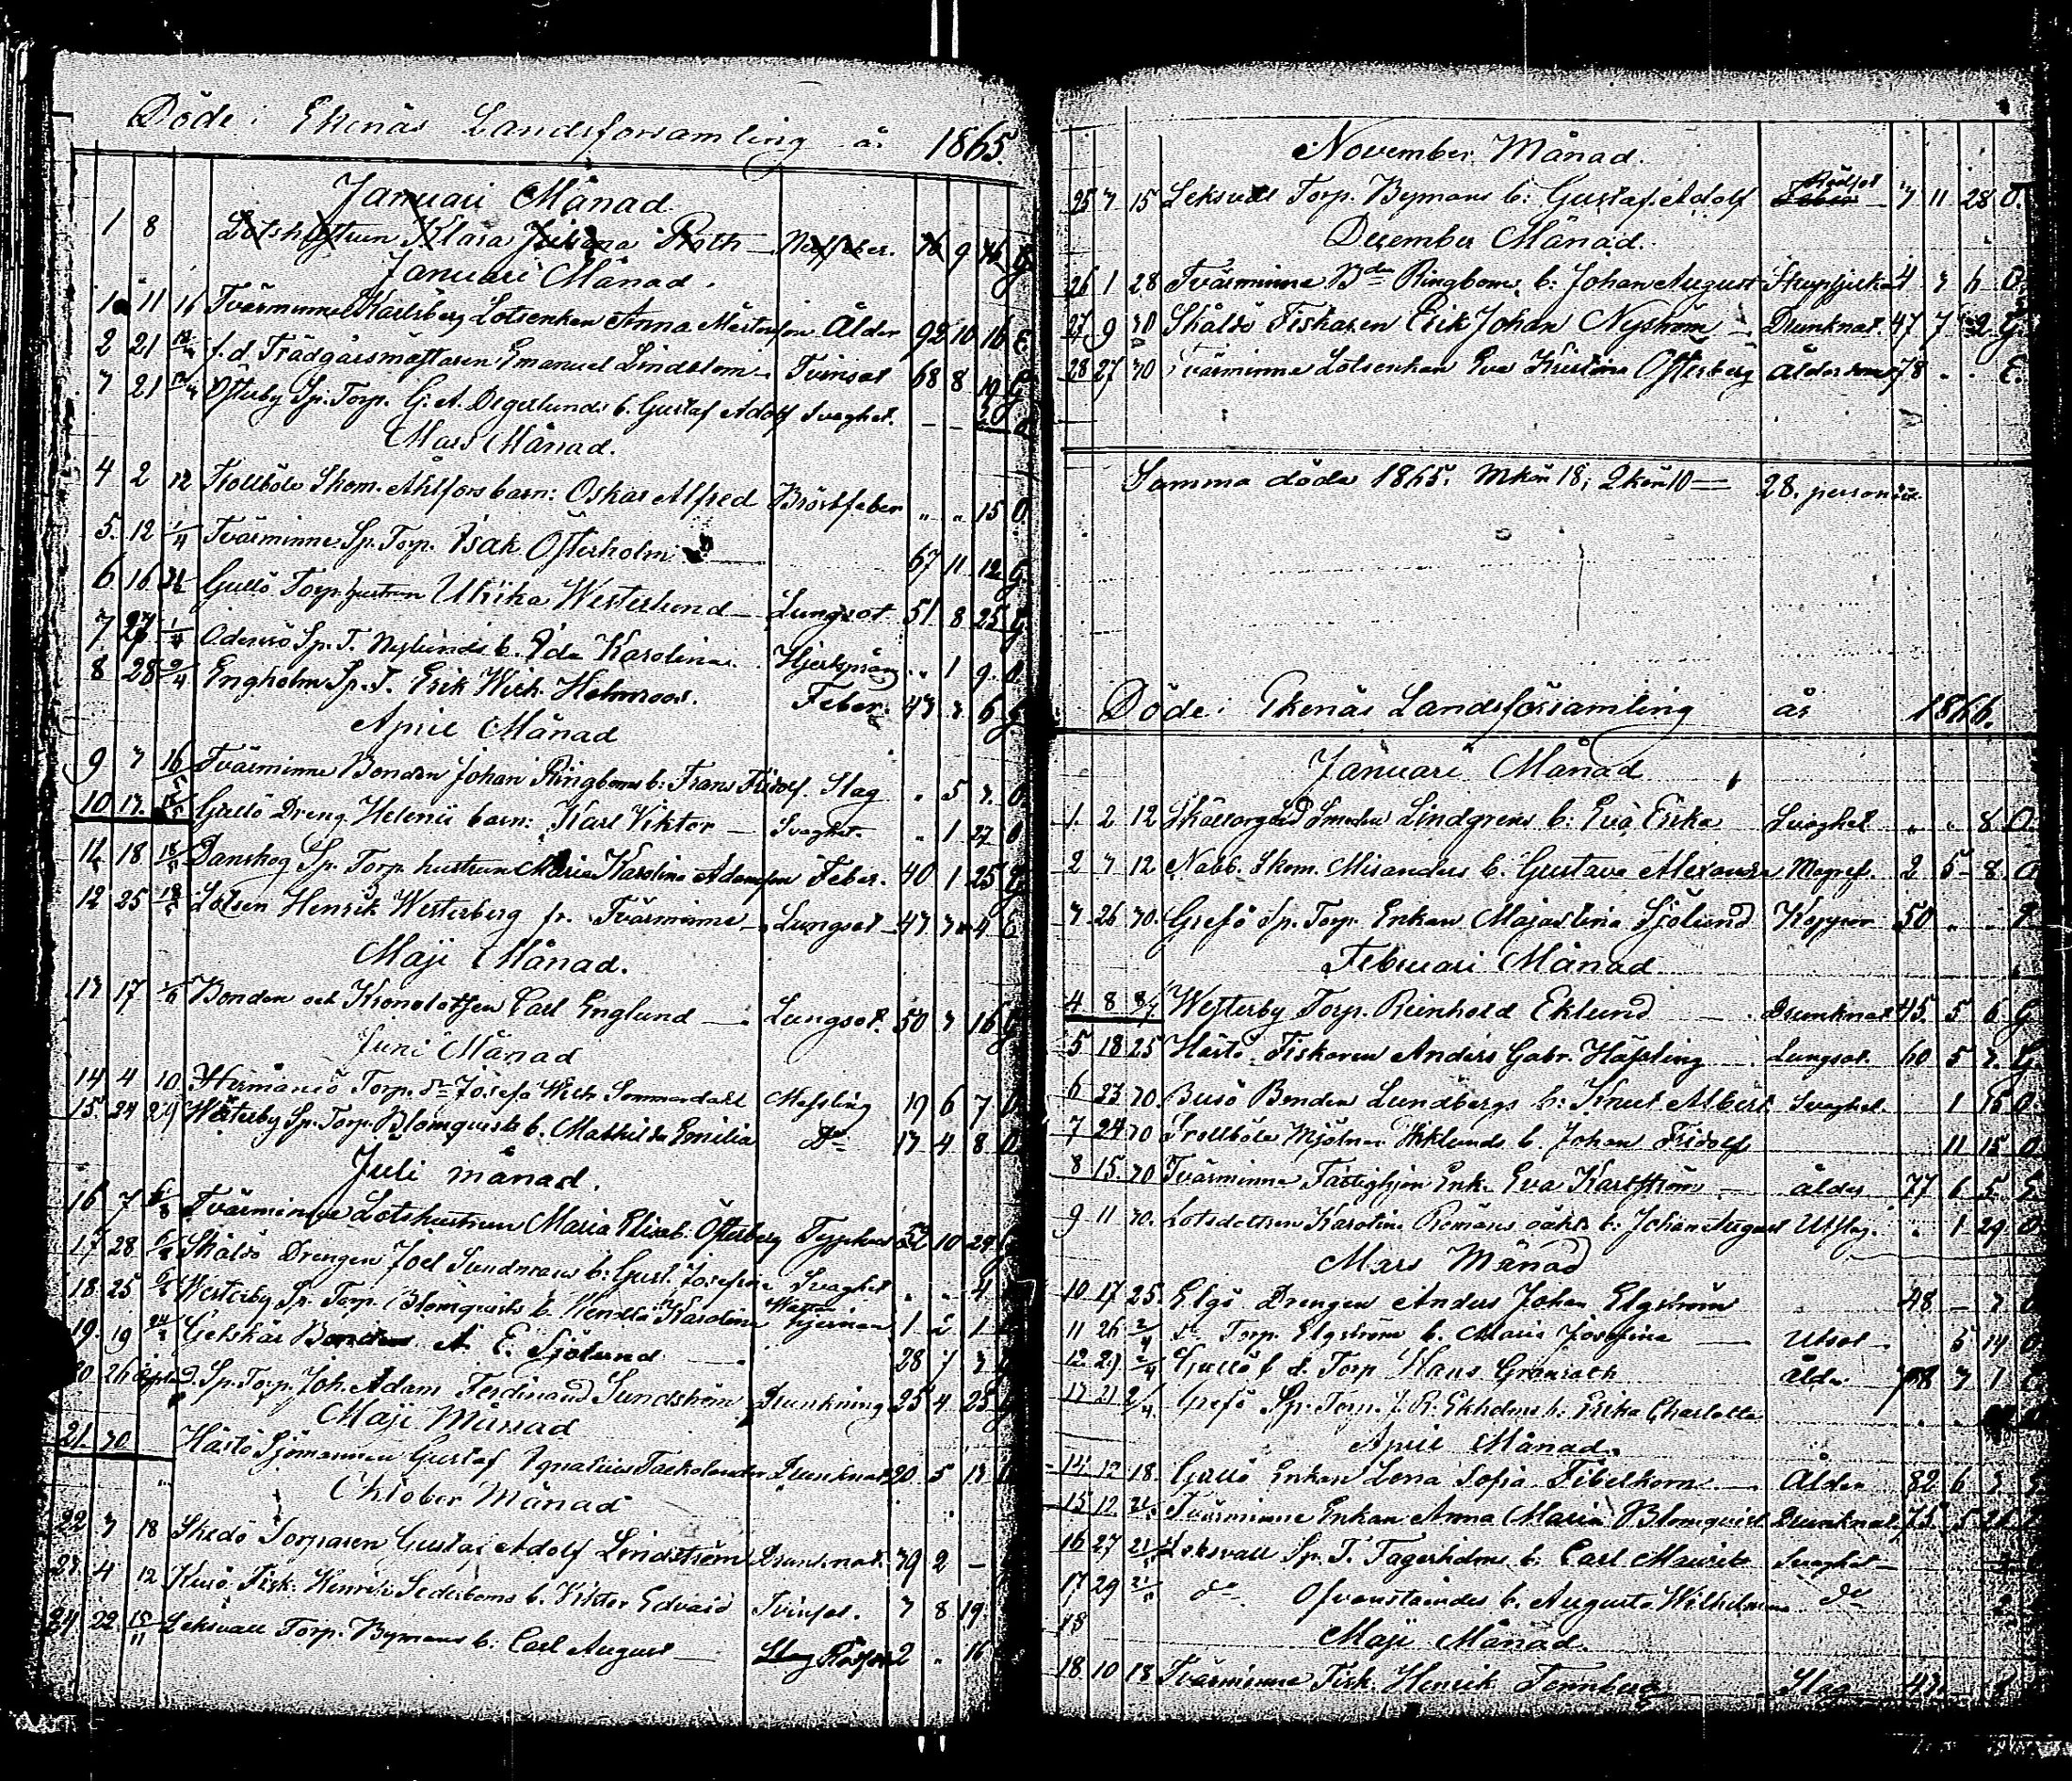 Döde i Ekenäs Landsforsamling år 1865.
Januari Månad
1 8 Lotshustrun Klara Juliana Roth 9
Januari Månad.
1 11 16 Tvärminne Karlsberg Lotsenkan Anna Mårtensson Ålder 92 10 16 E.
2 21 f.d. Trädgårsmästaren Emanuel Lindblom Tvinsot 68 8 19 G
3 21 Österby Sp. Torp. G. A. Degerlunds b. Gustaf Adolf Svaghet.
Mars Månad.
4 2 12 Trollböle Skom. Ahlfors barn: Oskar Alfred Bröstfeber " " 15 O.
5. 12 1/4 Tvärminne Sp. Torp. Isak Österholm 67 11 12 G.
6 16 Gullö Torp. hustrun Ulrika Westerlund Lungsot 51 8 25 G.
7 27 Odensö Sp. T. Nylunds b. Ida Karolina. " 1 9. O
8 28 2/4 Engholm Sp. T. Erik Wilh. Holmroos. Feber. 43 3 6 G
April Månad
9 3 16/5 Tvärminne Bonden Johan Ringboms b: Frans Fridolf Slag " 5 3. O.
10 17. Gullö Dreng Helenii barn: Karl Viktor Svaghet. " 1 27 O
11 18 Danskog Sp. Torp. hustrun Maria Karolina Adamsson Feber. 40 1 25 G
12 25 Lotsen Henrik Westerberg fr. Tvärminne Lungsot 43 3 4 G
Maji Månad.
13 17 Bonden och Kronolotsen Carl Englund Lungsot. 50 3 16 G
Juni Månad
14 4 10 Hermansö Torp. Josefa Wilh. Sommardahl Messling 19 6 7 O
15. 24 29 Westerby Sp. Torp. Blomqvists b. Mathilda Emilia Do 13 4 8 O
Juli månad.
16 7 6/8 Tvärminne Lotshustrun Maria Elisab. Österberg 10 29 G
17 28 Skåldö Drengen Joel Sundmans b: Gust. Josefina Svaghet " " 4
18. 25 Westerby Sp. Torp. Blomqvists b. Hendla Karolina Watten hjernan 1 2 1
19. 19 Getskär Bonden A. E. Sjölund 28 7 3 G
20. 26 d. Sp. Torp. Joh. Adam Ferdinand Sundström Drunkning 25 4 25 G
Maji Månad
21 30 Hästö Sjömannen Gustaf Ignatius Tackolander Drunknat 20 5 13
Oktober Månad
22 3 18 Skedö Torparen Gustaf Adolf Lindström Drunknat. 39 2 –
23. 4 12 Kusö Fisk. Henrik Sederboms b. Viktor Edvard Tvinsot. 7 8 19.
24 22 15/11 Leksvall Torp. Bymans b: Carl August Slag Rödsot 2 " 16
November Månad.
25 3 15 Leksvall Torp. Bymans b: Gustaf Adolf Feber Rödsot 3 11 28 O.
December Månad.
26 1 28 Tvärminne Bdn Ringboms b: Johan August Strypsjuka 4 3 6 O.
27 9 30 Skåldö Fiskaren Erik Johan Nyström Drunknat. 47 7 2 G
28 27 30 Tvärminne Lotsenkan Eva Kristina Österberg Ålderdom 78 " " E.
Samma döda 1865. Mkön 18, Qkön 10 = 28. personer
Döde i Ekenäs Landsförsamling år 1866.
Januari Månad
1. 2 12 Skällargård Smeden Lindgrens b: Eva Erika Svaghet " " 8 O.
2 7 12 Nabb. Skom. Misanders b. Gustava Alexandra Magref. 2 5 8. O
3 26 30. Grefö Sp. Torp. Enkan Maja Stina Sjölund Koppor 50 " " E
Februari Månad
4 8 Westerby Torp. Reinhold Eklund Drunknat 45. 5 6 G
5 18 25 Hästö Fiskaren Anders Gabr. Hässling Lungsot. 60 5 3. G.
6 23 30. Busö Bonden Lundbergs b: Knut Albert Svaghet. 1 15 O
7 24 30 Trollböle Mjölnar Eklunds b. Johan Fridolf 11 15 O.
8 15. 30 Tvärminne Fattighjon Enk. Eva Karlström Ålder 77 6 5 E
9 11 30. Lotsdottren Karolina Remans oäkt. b: Johan August Utslag. " 1 29 O.
Mars Månad
10 17 25. Elgö Drengen Anders Johan Elgström 48 – 3
11 26 2/4 do Torp. Elgström b. Maria Josefina Utsot 5 14 O
12. 29 2/4 Gullö f. d. Torp Hans Grönroth Ålder 3 1
13 21 2/4 Grefö Sp. Torp. J. R. Ekholms b: Erika Charlotta
April Månad.
14. 12 18. Gullö Enkan Lena Sofia Fibelkorn Ålder 82 6 3 E
15 12. Tvärminne Enkan Anna Maria Blomqvist Drunknat 73 5
16 27 Leksvall Sp. T. Tagerholms b: Carl Maurits Svaghet
17 29 do Ofvanståndes b. Augusta Wilhelmina do
18
Maji Månad.
18 10 18 Tvärminne Fisk. Henrik Tennberg Slag 43.